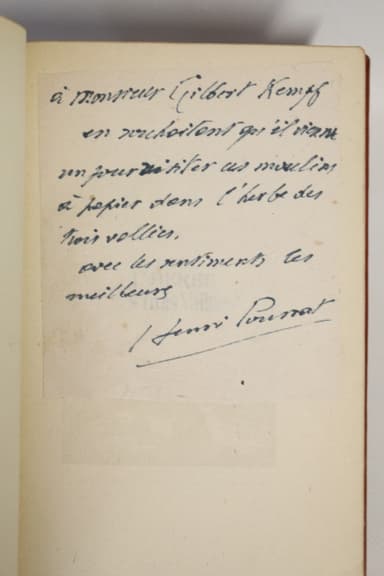 à Monsieur Gilbert Kempf
en souhaitant qu'il vienne
un jour visiter ces moulins
à papier dans l'herbe des
trois vallées.
avec les sentiments les
meilleurs
Henri Pourrat